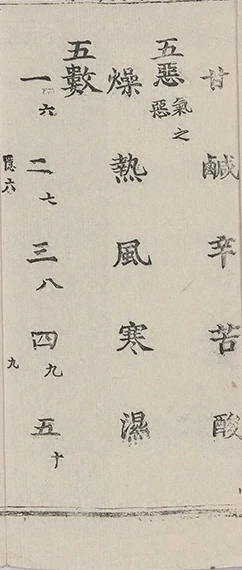 甘鹹辛苦酸
五惡氣之惡
燥熱風寒濕
五數
一六二七三八四九五十
隱六 九